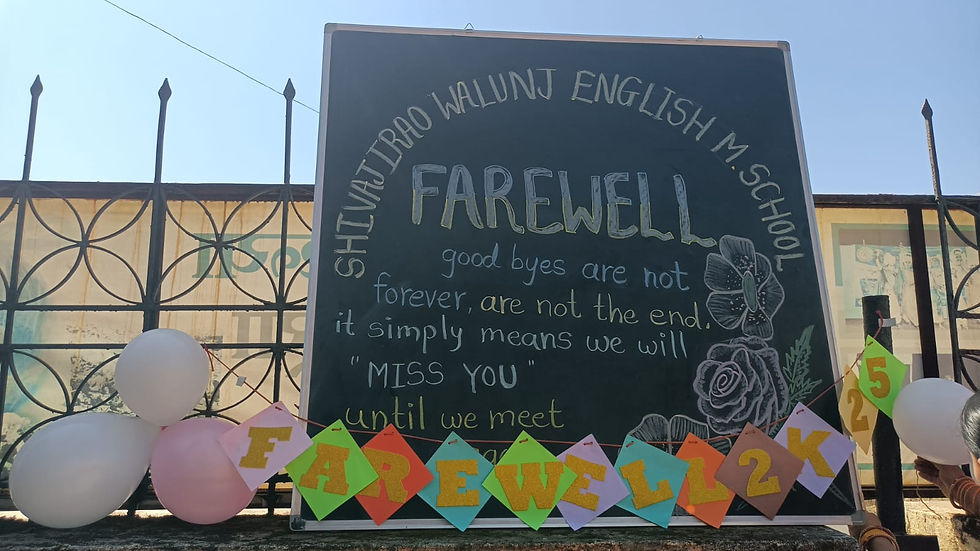 SHIVAJIRAO WALUNJ ENGLISH M. SCHOOL
FAREWELL
good byes are not
forever, are not the end.
it simply means we will
"MISS YOU"
until we meet
FAREWELL 2K25